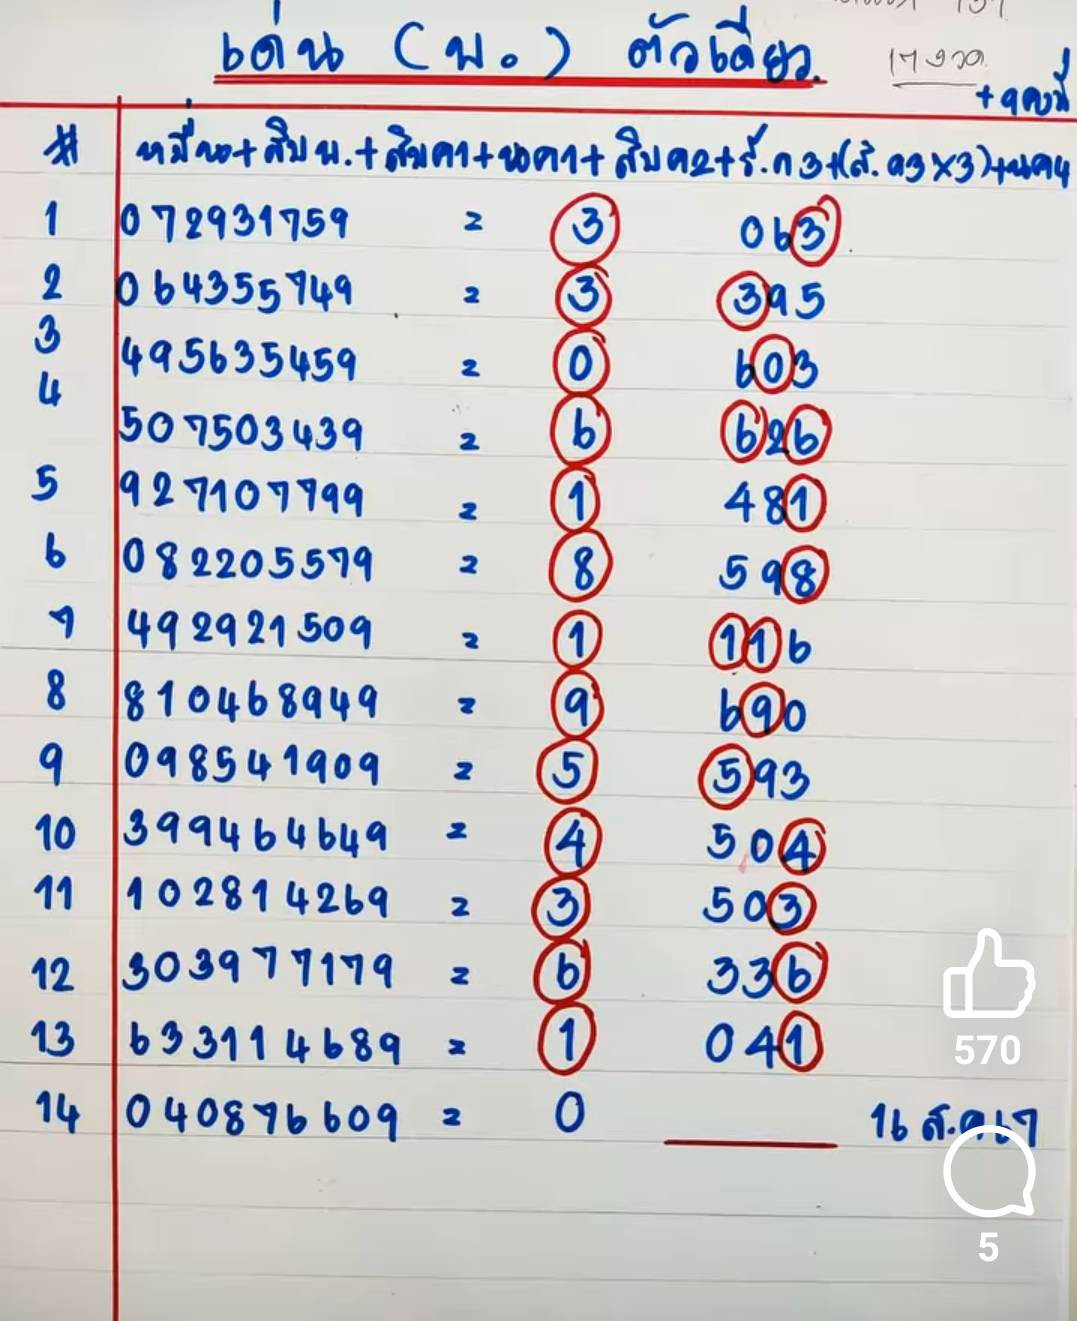 เด่น (บ.) ตัวเดียว.
17 งวด
+9 คงที่
# หมื่นบ+สิบบ.+สิบค1+นคค1+สิบค2+ร้.ค3+(ส.ค3x3)+นค4
1 072931759 = 3 063
2 064355749 = 3 395
3 495635459 = 0 603
4 507503439 = 6 626
5 927107799 = 1 481
6 082205579 = 8 598
7 492921509 = 1 116
8 810468949 = 9 690
9 098541909 = 5 593
10 399464649 = 4 504
11 102814269 = 3 503
12 303977179 = 6 336
13 633114689 = 1 041
14 040876609 = 0 16 ส.ค67
570
5